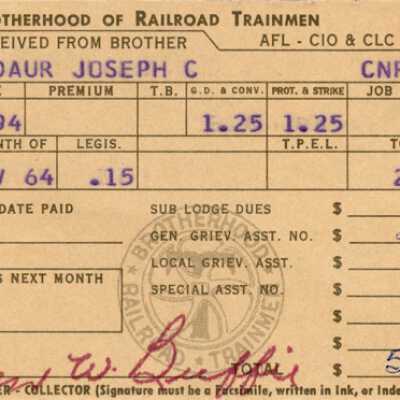 OTHERHOOD OF RAILROAD TRAINMEN
CEIVED FROM BROTHER AFL - CIO & CLC
DAUR JOSEPH C CNR
E PREMIUM T.B. G.D. & CONV. PROT. & STRIKE JOB
94 1.25 1.25
NTH OF LEGIS. T.P.E.L. TO
V 64 .15 2
DATE PAID SUB LODGE DUES $
GEN. GRIEV. ASST. NO. $
LOCAL GRIEV. ASST. $
S NEXT MONTH SPECIAL ASST. NO. $
BROTHERHOOD RAILROAD TRAINMEN
W. TOTAL $ 5
ER - COLLECTOR (Signature must be a Facsimile, written in Ink, or Inde